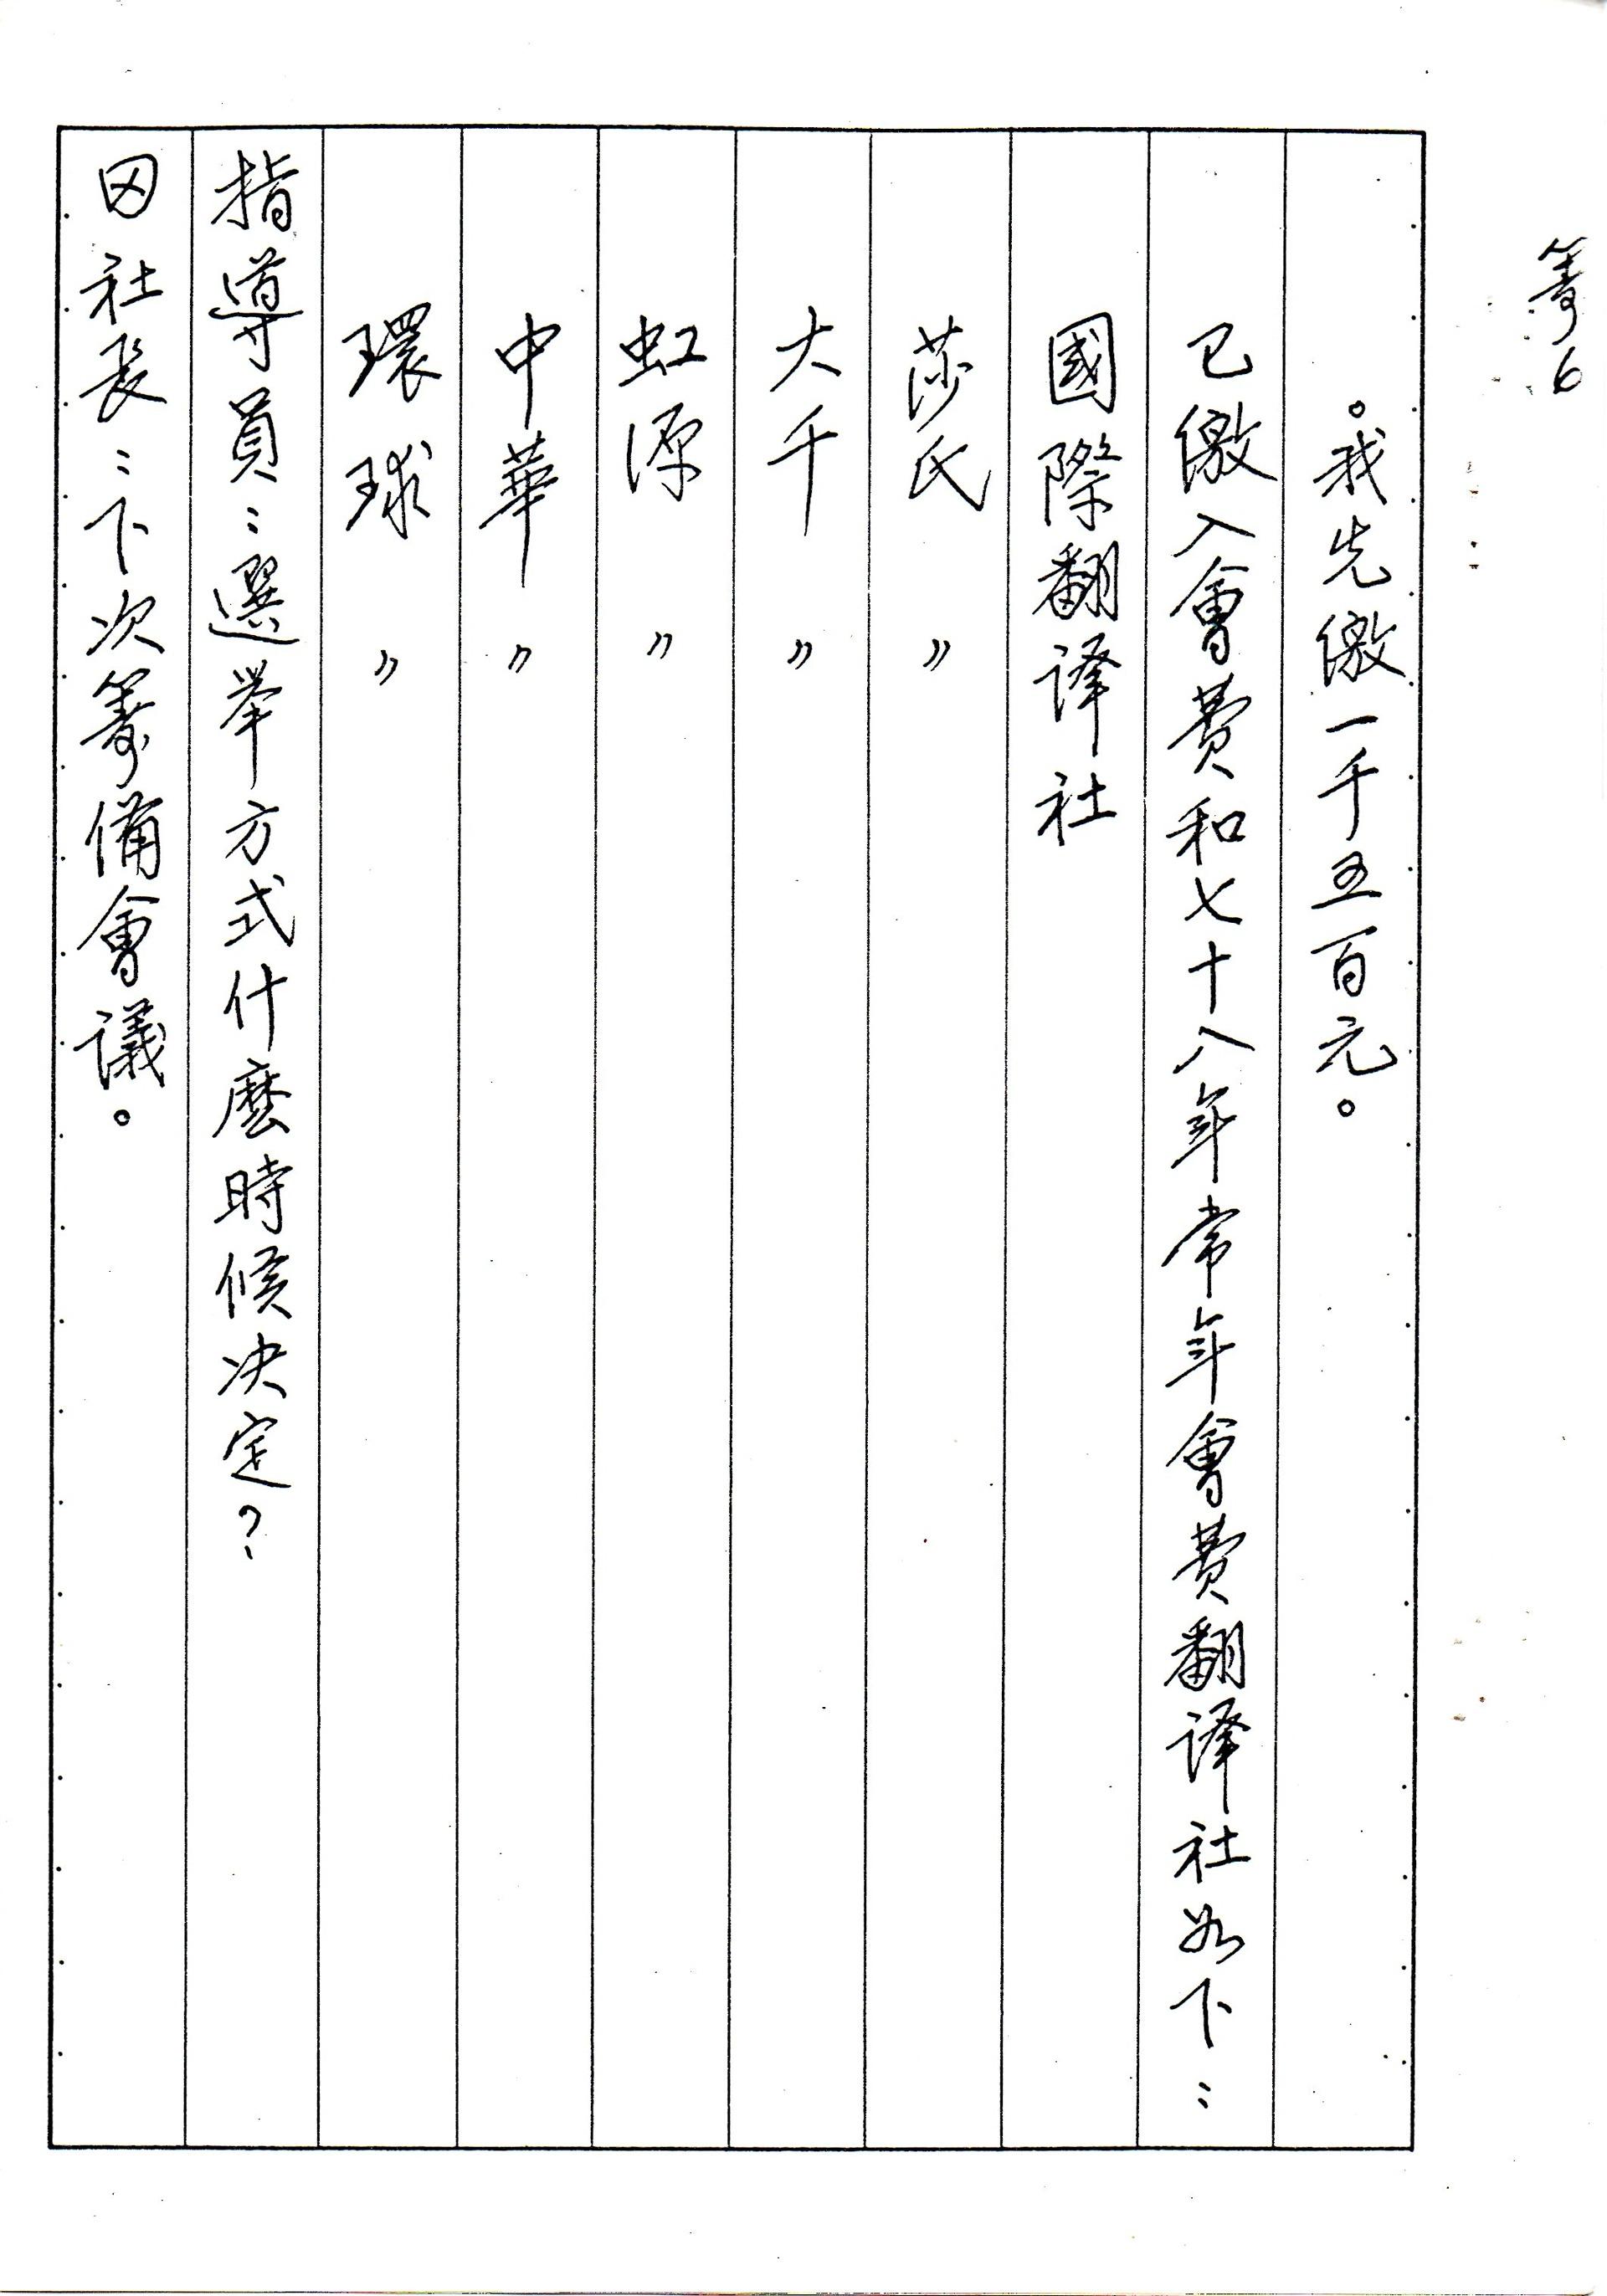 籌6
。我先繳一千五百元。
已繳入會費和七十八年常年會費翻譯社如下：
國際翻譯社
莎氏 〃
大千 〃
虹源 〃
中華 〃
環球 〃
指導員：選举方式什麼時候決定？
田社長：下次籌備會議。